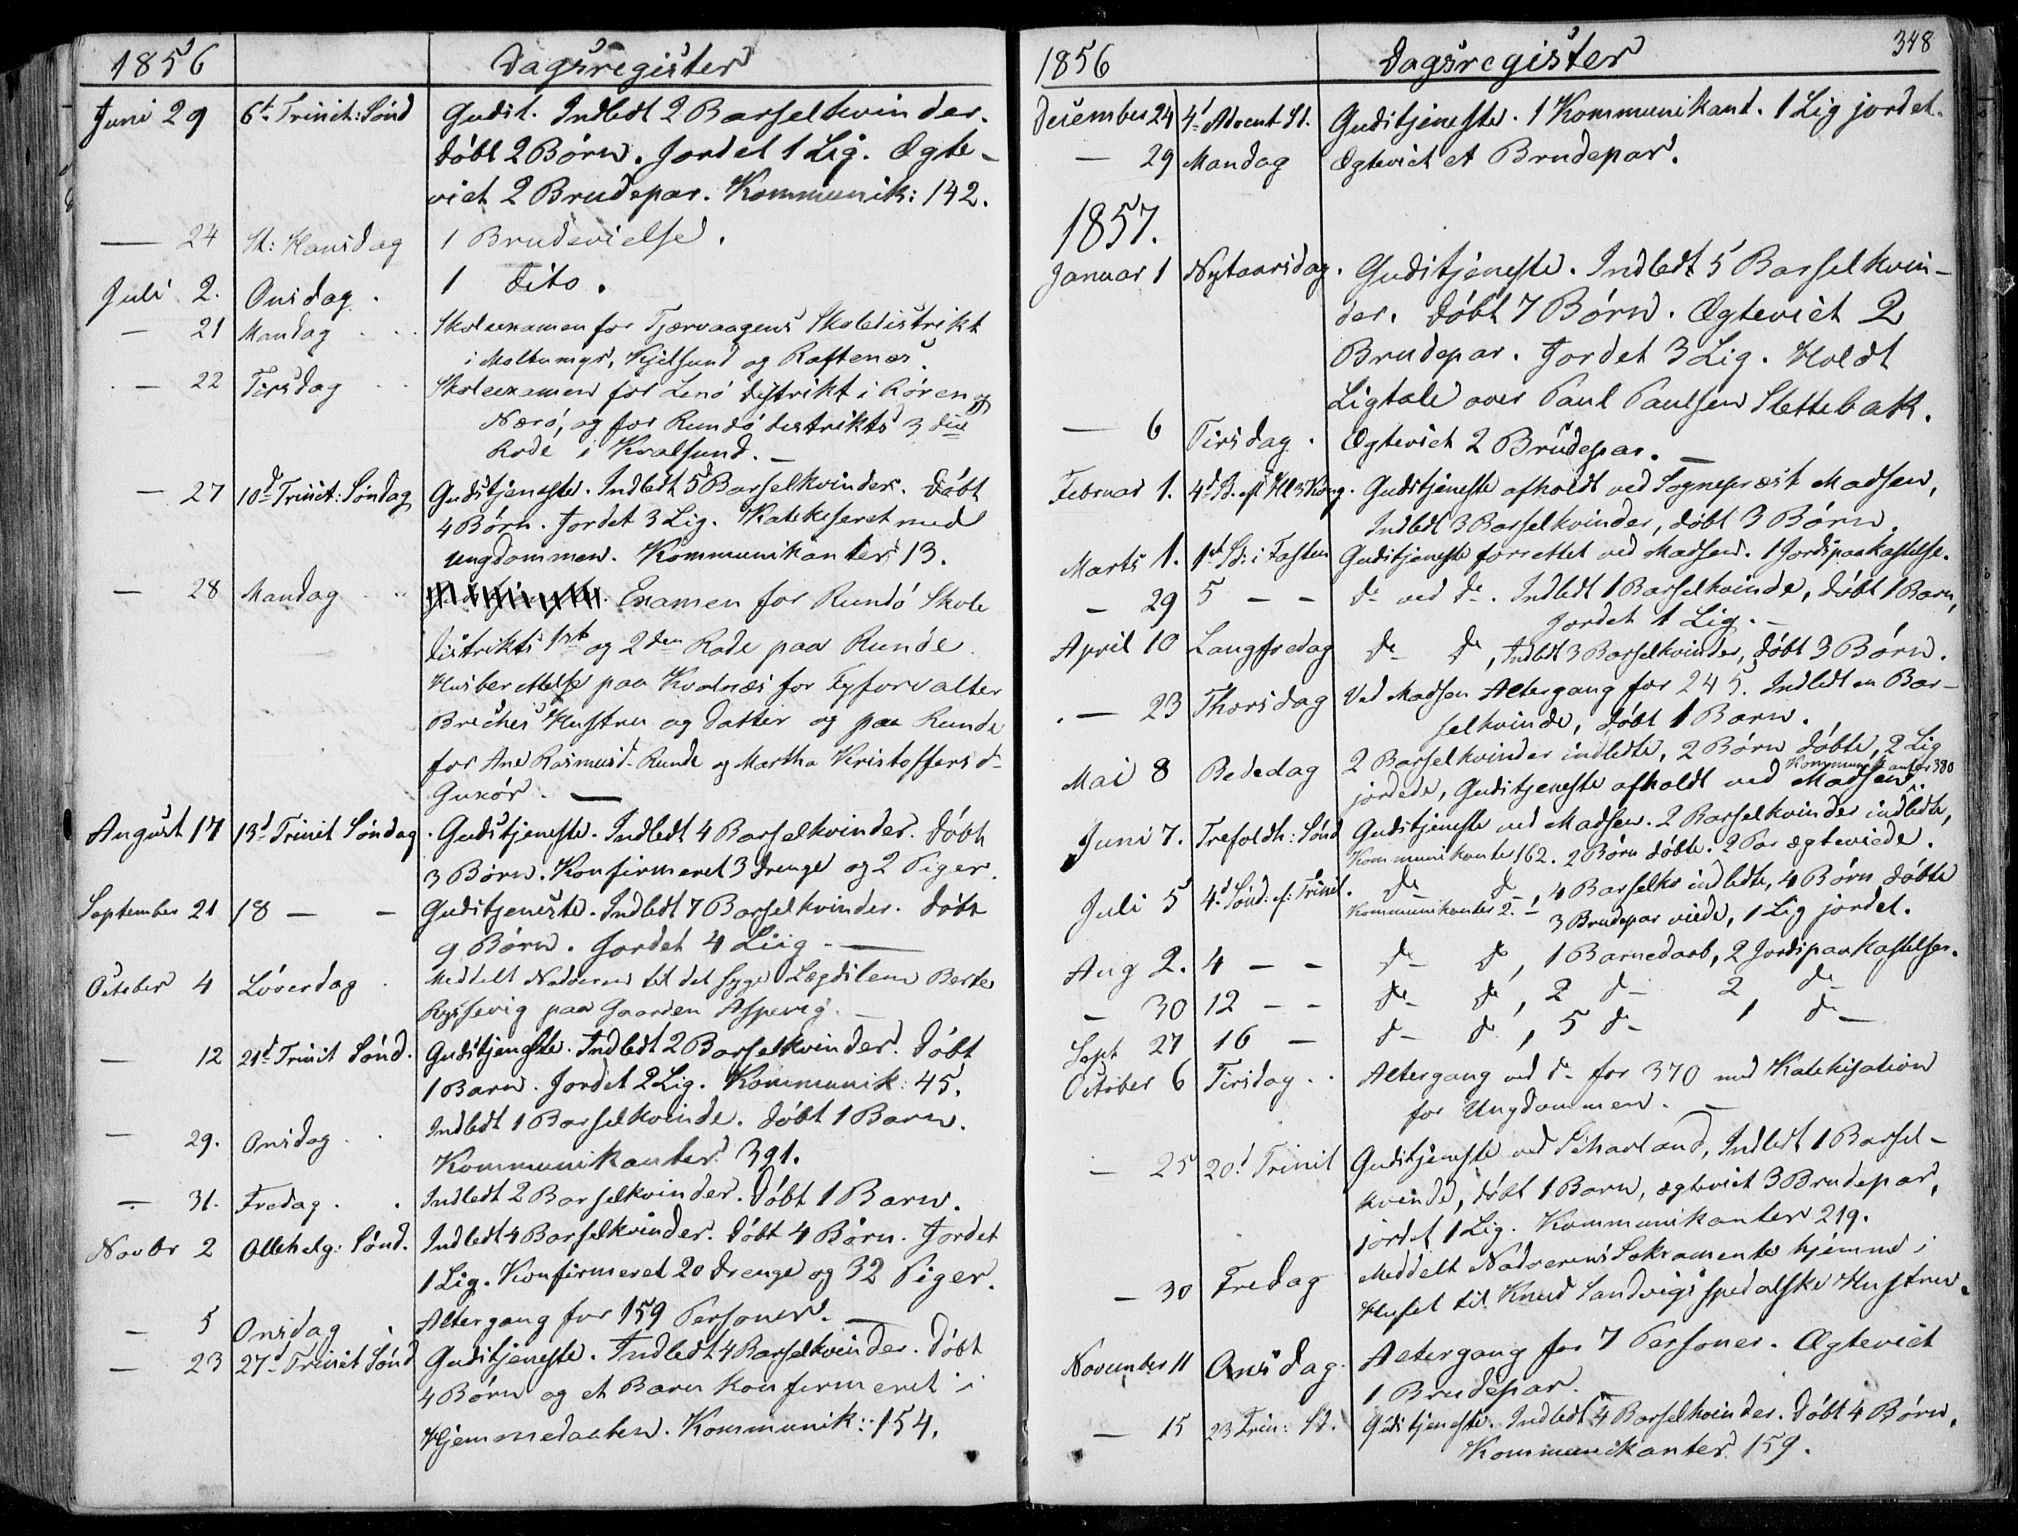 1856 Dagsregister
Juni 29 6t Trinit: Sønd Gudst. Indledt 2 Barselkvinder.
Døbt 2 Børn. Jordet 1 Lig. Ægte-
viet 2 Brudepar. Kommunik: 142.
— 24 St: Hansdag 1 Brudevielse.
Juli 2. Onsdag. 1 Dito.
— 21 Mandag . . . Skoleexamen for Tjærvaagens Skoledistrikt
i Moltumyr, Kjelsund og Raftenæs.
— 22 Tirsdag . . Skoleexamen for Lenø Distrikt i Røren og
Nærø, og for Rundø Distrikts 3die
Rode i Kvalsund. —
— 27 10d Trinit: Søndag Gudstjeneste. Indledt 5 Barselkvinder. Døbt
4 Børn. Jordet 3 Lig. Katekiseret med
Ungdommen. Kommunikanter 13.
— 28 Mandag . . Examen for Rundø Skole
Distrikts 1ste og 2den Rode paa Runde.
Husberettelse paa Kvalnæs for Tyforvalter
Briches Hustru og Datter og paa Runde
for Ane Rasmusd. Runde og Martha Kristoffersd.
Guxør. —
August 17 13d Trinit Søndag. Gudstjeneste. Indledt 4 Barselkvinder. Døbt
3 Børn. Konfirmeret 3 Drenge og 2 Piger.
September 21 18 — — Gudstjeneste. Indledt 7 Barselkvinder. Døbt
9 Børn. Jordet 4 Liig. —
October 4 Løverdag . Meddelt Nadveren til det syge Lægdslem Berte
Ryssevig paa Gaarden Aspevig. —
— 12 21d Trinit Sønd. Gudstjeneste. Indledt 2 Barselkvinder. Døbt
1 Barn. Jordet 2 Lig. Kommunik: 45.
— 29. Onsdag . . Indledt 1 Barselkvinde. Døbt 1 Barn.
Kommunikanter 391.
— 31. Fredag . . Indledt 2 Barselkvinder. Døbt 1 Barn.
Novbr 2 Allehelg: Sønd. Indledt 4 Barselkvinder. Døbt 4 Børn. Jordet
1 Lig. Konfirmeret 20 Drenge og 32 Piger.
— 5 Onsdag . Altergang for 159 Personer. —
— 23 27d Trinit Sønd Gudstjeneste. Indledt 4 Barselkvinder. Døbt
4 Børn og et Barn konfirmeret i
Hjemmedaaben. Kommunik: 154.
1856 Dagsregister 348
December 24 4d Advent Sd. Gudstjeneste. 1 Kommunikant. 1 Lig jordet.
— 29 Mandag Ægteviet et Brudepar.
1857.
Januar 1 Nytaarsdag. Gudstjeneste. Indledt 5 Barselkvin-
der. Døbt 7 Børn. Ægteviet 2
Brudepar. Jordet 3 Lig. Holdt
Ligtale over Paul Paulsen Slettebak.
— 6 Tirsdag . Ægteviet 2 Brudepar. —
Februar 1. 4d S. ef Hl 3 Kong. Gudstjeneste afholdt ved Sognepræst Madsen,
Indledt 3 Barselkvinder, døbt 3 Børn.
Marts 1. 1st Sd: i Fasten Gudstjeneste forrettet ved Madsen. 1 Jordspaakastelse.
— 29 5 — — do ved do. Indledt 1 Barselkvinde, døbt 1 Barn,
Jordet 1 Lig. —
April 10 Langfredag do do, Indledt 3 Barselkvinder, døbt 3 Børn.
— 23 Thorsdag Ved Madsen Altergang for 245. Indledt en Bar-
selkvinde, døbt 1 Barn.
Mai 8 Bededag 2 Barselkvinder indledte, 2 Børn døbte, 2 Lig
Kommunikanter 380
jordede, Gudstjeneste afholdt ved Madsen.
Juni 7. Trefoldh: Sønd Gudstjeneste ved Madsen. 2 Barselkvinder indledte,
Kommunikanter 162. 2 Børn døbte. 2 Par ægteviede.
Juli 5 4d Sønd. ef: Trinit. do do, 4 Barselkv indledte, 4 Børn døbte
Kommunikanter 2. 3 Brudepar viede, 1 Lig jordet.
Aug 2. 4 — — do do, 1 Barnedaab, 2 Jordspaakastelser.
— 30 12 — — do do, 2 do 2 do
Sept 27 16 — do do, 5 do 1 do
October 6 Tirsdag . . Altergang ved do for 370 med Katekisation
for Ungdommen. —
— 25 20d Trinit Gudstjeneste ved Scharland, Indledt 1 Barsel-
kvinde, døbt 1 Barn, ægteviet 3 Brudepar,
jordet 1 Lig. Kommunikanter 219.
— 30 Fredag Meddelt Nadverens Sakramente hjemme i
Huset til Knud Sandvigs spedalske Hustru.
November 11 Onsdag. Altergang for 7 Personer. Ægteviet
1 Brudepar.
— 15 23 Trin: Sd. Gudstjeneste. Indledt 4 Barselkvinder. Døbt 4 Børn.
Kommunikanter 159.